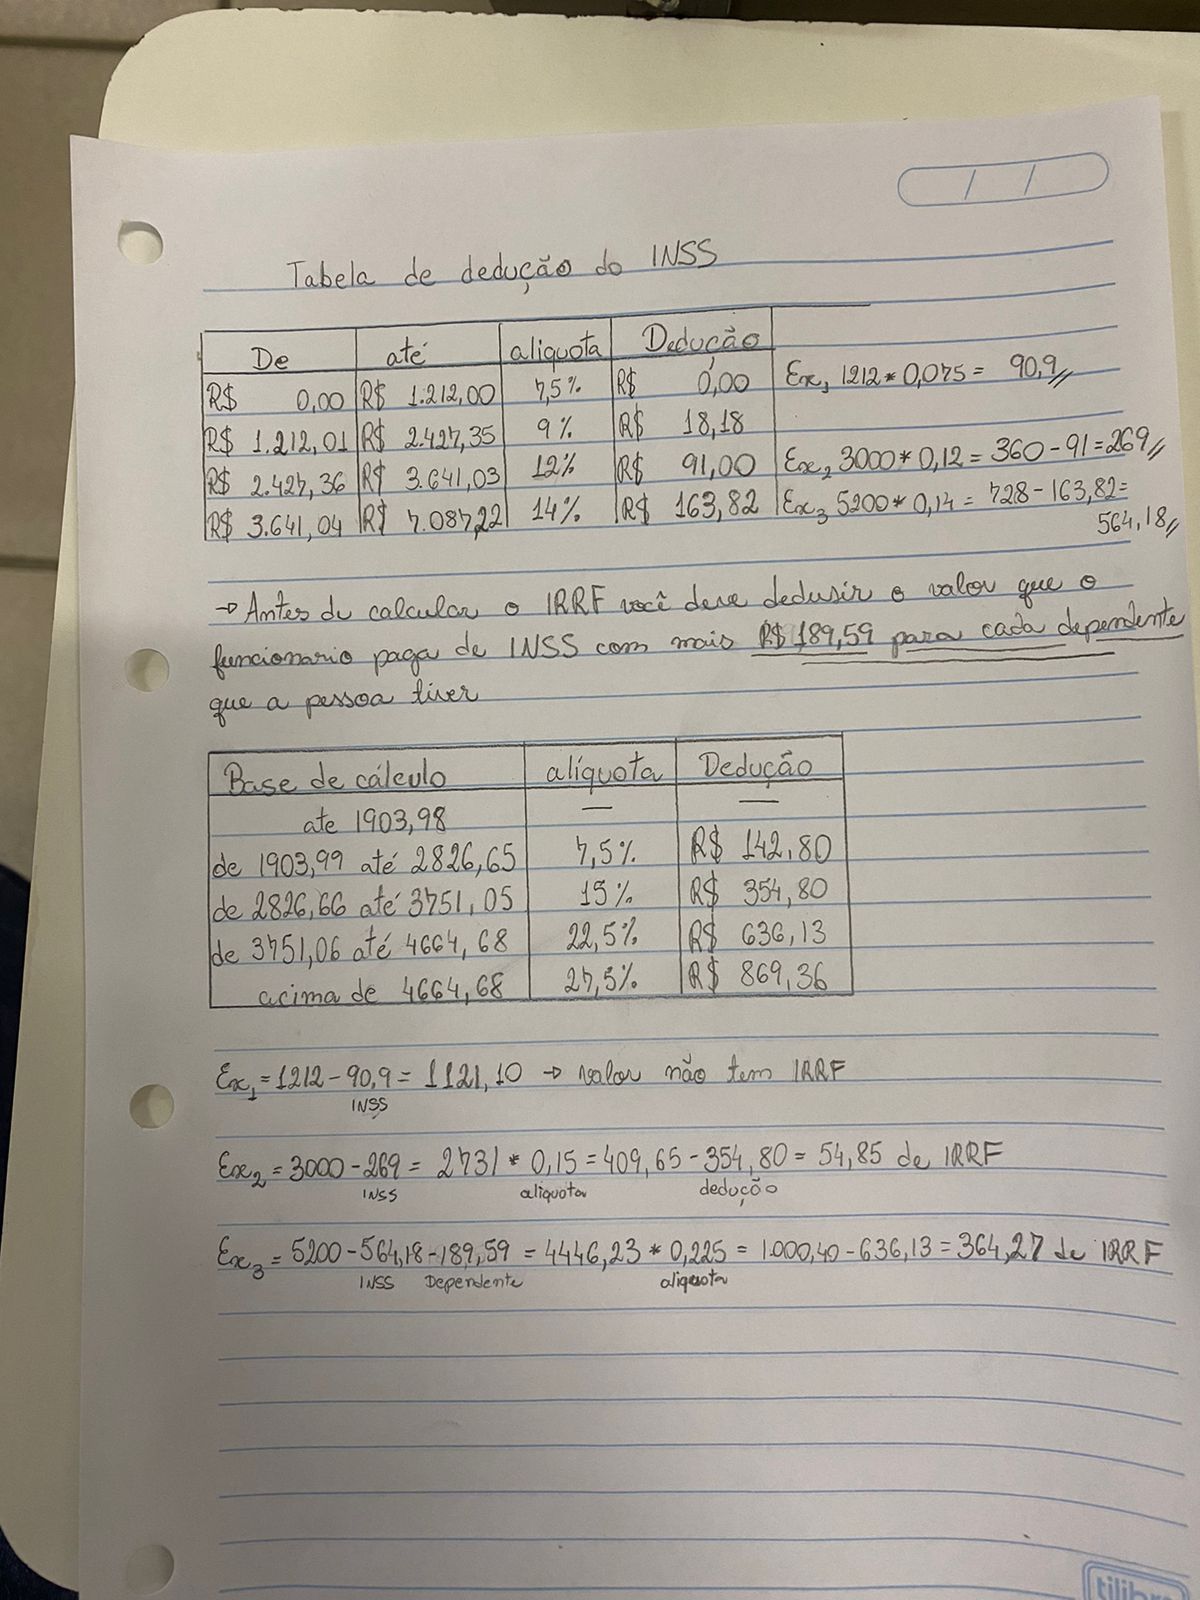 Tabela de dedução do INSS
De até aliquota Dedução
R$ 0,00 R$ 1.212,00 7,5% R$ 0,00 Ex1 1212*0,075= 90,9
R$ 1.212,01 R$ 2.427,35 9% R$ 18,18
R$ 2.427,36 R$ 3.641,03 12% R$ 91,00 Ex2 3000*0,12=360-91=269
R$ 3.641,04 R$ 7.087,22 14% R$ 163,82 Ex3 5200*0,14=728-163,82=
564,18
→ Antes de calcular o IRRF você deve dedusir o valor que o
funcionario paga de INSS com mais R$ 189,59 para cada dependente
que a pessoa tiver
Base de cálculo alíquota Dedução
ate 1903,98 — —
de 1903,99 até 2826,65 7,5% R$ 142,80
de 2826,66 até 3751,05 15% R$ 354,80
de 3751,06 até 4664,68 22,5% R$ 636,13
acima de 4664,68 27,5% R$ 869,36
Ex1=1212-90,9=1121,10 → valor não tem IRRF
INSS
Ex2=3000-269=2731*0,15=409,65-354,80=54,85 de IRRF
INSS aliquota dedução
Ex3=5200-564,18-189,59=4446,23*0,225=1.000,40-636,13=364,27 de IRRF
INSS Dependente aliquota